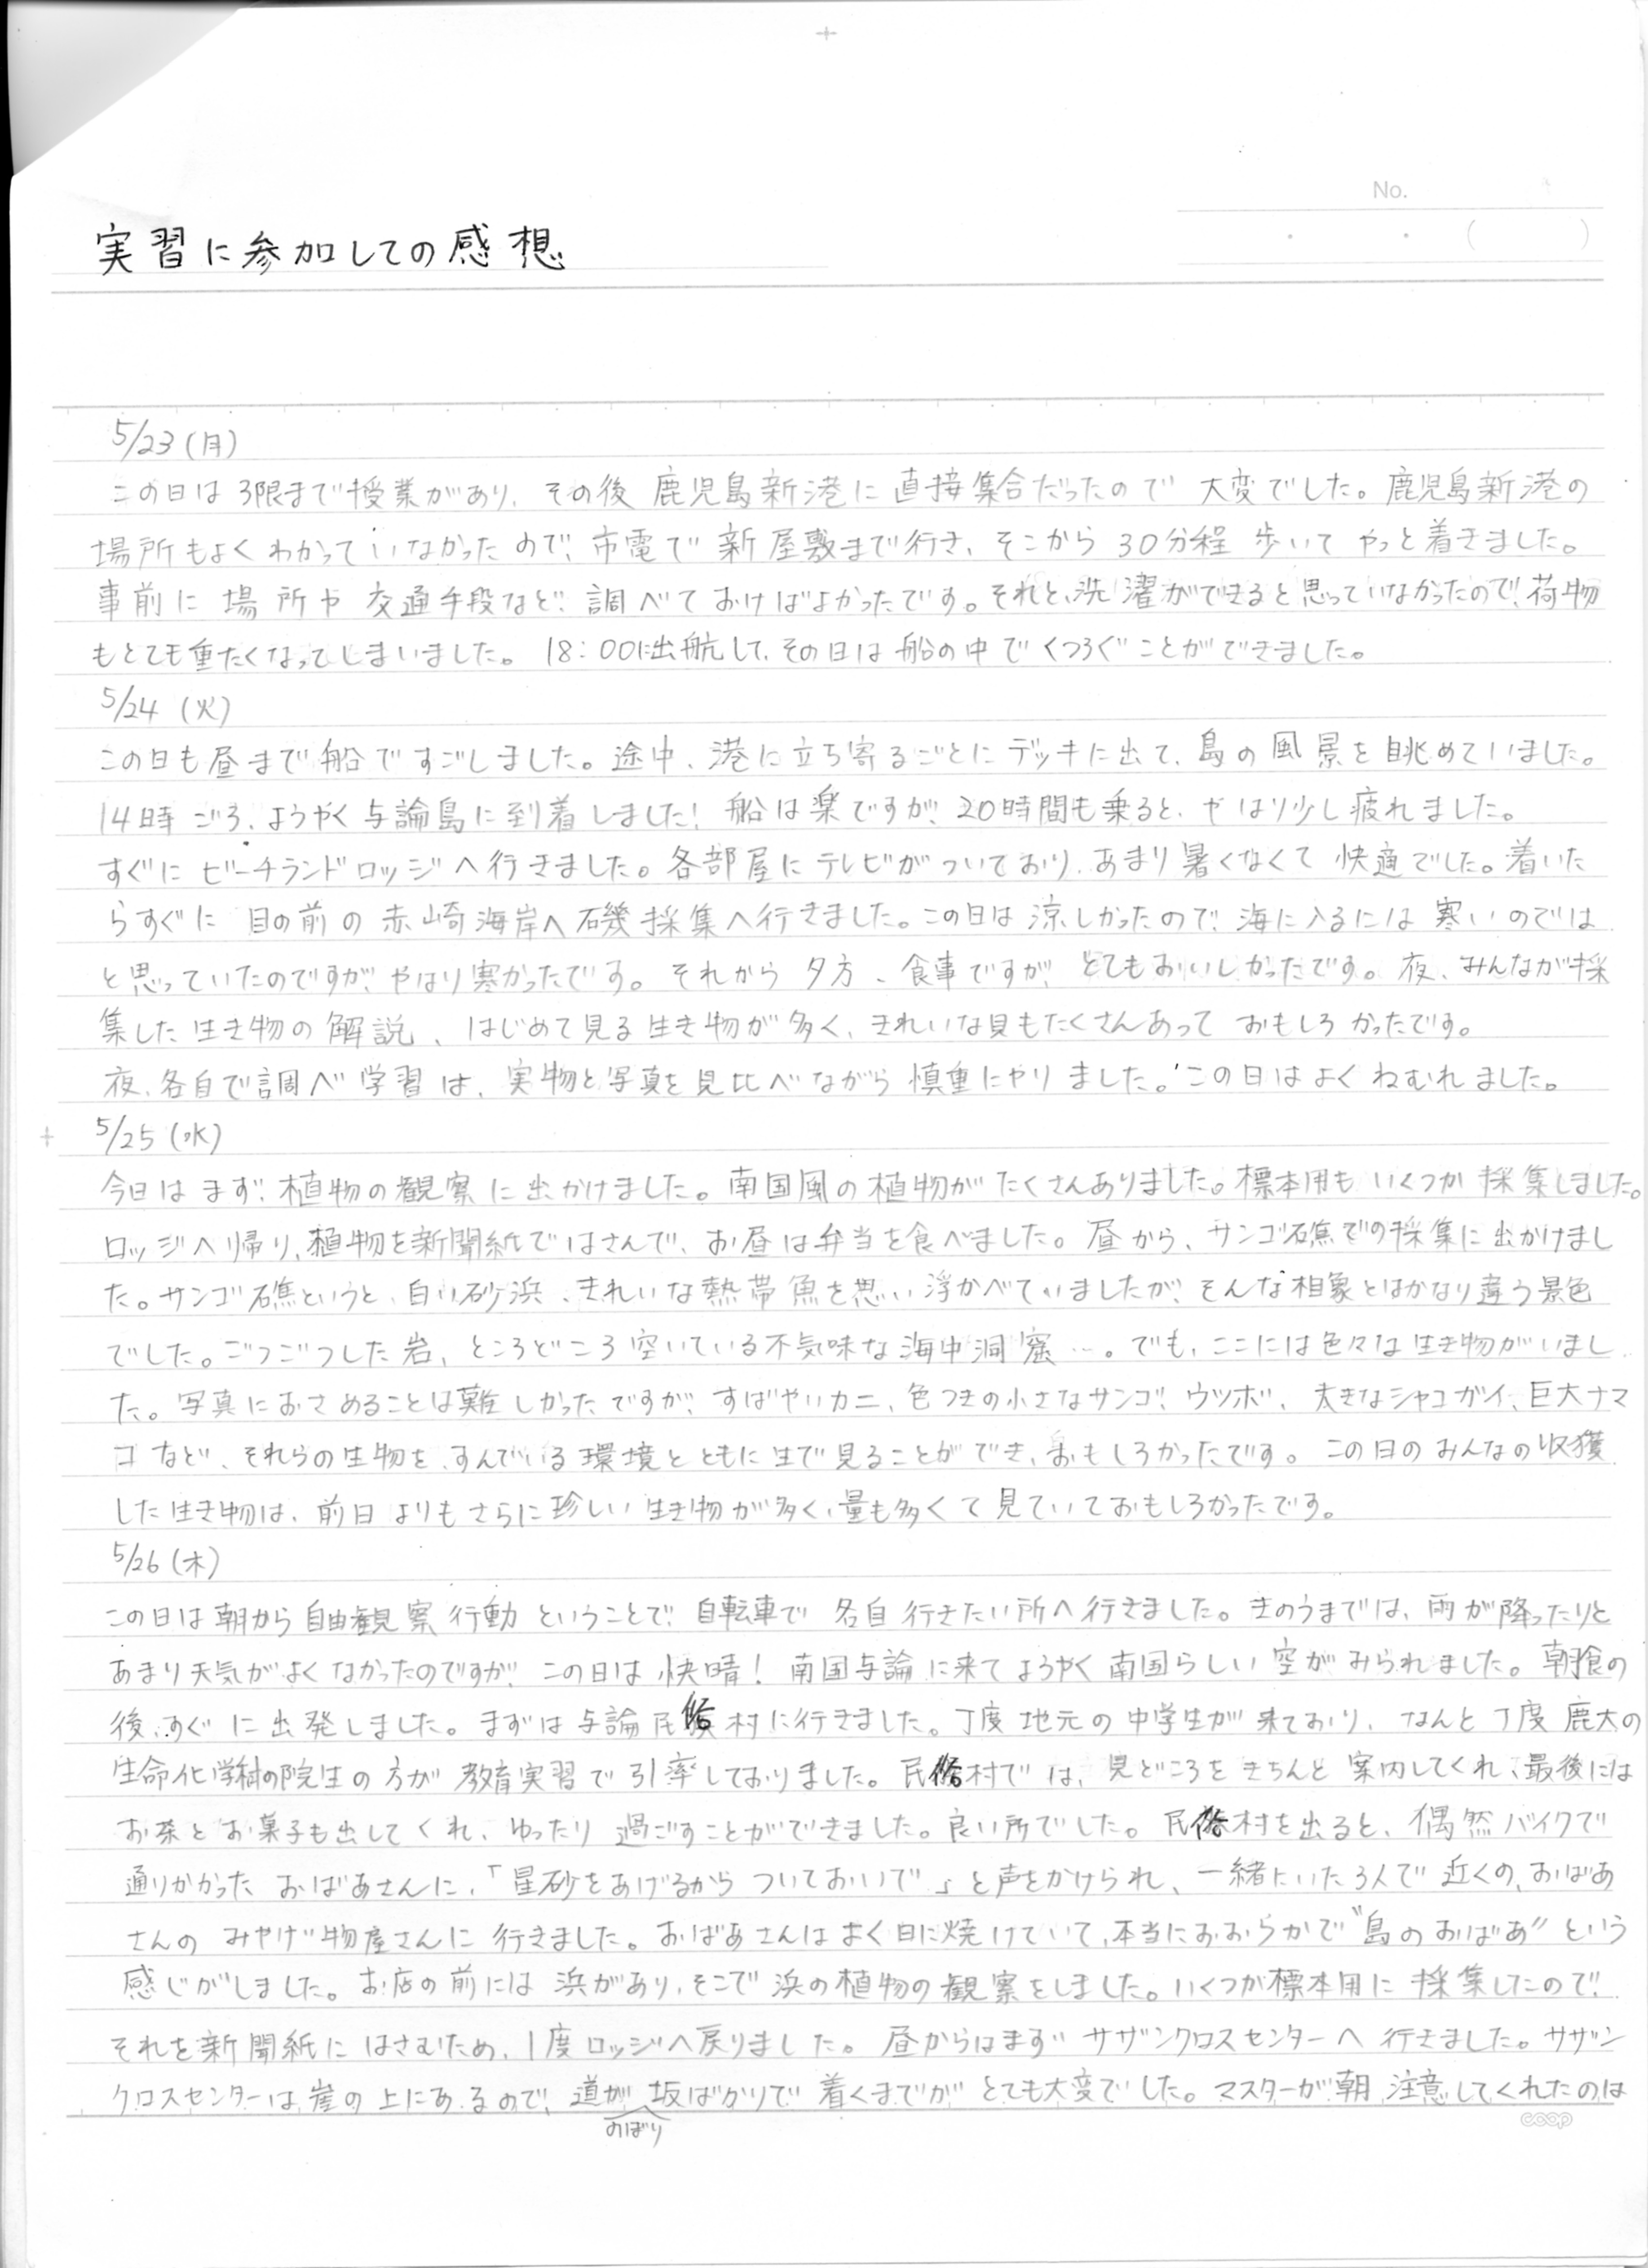 No.
実習に参加しての感想
5/23(月)
この日は3限まで授業があり、その後鹿児島新港に直接集合だったので大変でした。鹿児島新港の
場所もよくわかっていなかったので、市電で新屋敷まで行き、そこから30分程歩いてやっと着きました。
事前に場所や交通手段など、調べておけばよかったです。それと、洗濯ができると思っていなかったので、荷物
もとても重たくなってしまいました。18:00に出航して、その日は船の中でくつろぐことができました。
5/24(火)
この日も昼まで船ですごしました。途中、港に立ち寄るごとにデッキに出て、島の風景を眺めていました。
14時ごろ、ようやく与論島に到着しました!船は楽ですが、20時間も乗ると、やはり少し疲れました。
すぐにビーチランドロッジへ行きました。各部屋にテレビがついており、あまり暑くなくて快適でした。着いた
らすぐに目の前の赤崎海岸へ磯採集へ行きました。この日は涼しかったので、海に入るには寒いのでは
と思っていたのですが、やはり寒かったです。それから夕方、食事ですが、とてもおいしかったです。夜、みんなが採
集した生き物の解説、はじめて見る生き物が多く、きれいな貝もたくさんあっておもしろかったです。
夜、各自で調べ学習は、実物と写真を見比べながら慎重にやりました。この日はよくねむれました。
5/25(水)
今日はまず、植物の観察に出かけました。南国風の植物がたくさんありました。標本用もいくつか採集しました。
ロッジへ帰り、植物を新聞紙ではさんで、お昼は弁当を食べました。昼から、サンゴ礁での採集に出かけまし
た。サンゴ礁というと、白い砂浜、きれいな熱帯魚を思い浮かべていましたが、そんな相象とはかなり違う景色
でした。ごつごつした岩、ところどころ空いている不気味な海中洞窟…。でも、ここには色々な生き物がいまし
た。写真におさめることは難しかったですが、すばやいカニ、色つきの小さなサンゴ、ウツボ、大きなシャコガイ、巨大ナマ
コなど、それらの生物を、すんでいる環境とともに生で見ることができ、おもしろかったです。この日のみんなの収獲
した生き物は、前日よりもさらに珍しい生き物が多く、量も多くて見ていておもしろかったです。
5/26(木)
この日は朝から自由観察行動ということで、自転車で各自行きたい所へ行きました。きのうまでは、雨が降ったりと
あまり天気がよくなかったのですが、この日は快晴!南国与論に来てようやく南国らしい空がみられました。朝食の
後、すぐに出発しました。まずは与論民俗村に行きました。丁度地元の中学生が来ており、なんと丁度鹿大の
生命化学科の院生の方が教育実習で引率しておりました。民俗村では、見どころをきちんと案内してくれ、最後には
お茶とお菓子も出してくれ、ゆったり過ごすことができました。良い所でした。民俗村を出ると、偶然バイクで
通りかかったおばあさんに、「星砂をあげるからついておいで」と声をかけられ、一緒にいた3人で近くの、おばあ
さんのみやげ物屋さんに行きました。おばあさんはよく日に焼けていて、本当におおらかで"島のおばあ"という
感じがしました。お店の前には浜があり、そこで浜の植物の観察をしました。いくつか標本用に採集したので、
それを新聞紙にはさむため、1度ロッジへ戻りました。昼からはまずサザンクロスセンターへ行きました。サザン
クロスセンターは崖の上にあるので、道がのぼり坂ばかりで着くまでがとても大変でした。マスターが朝注意してくれたのは
coop